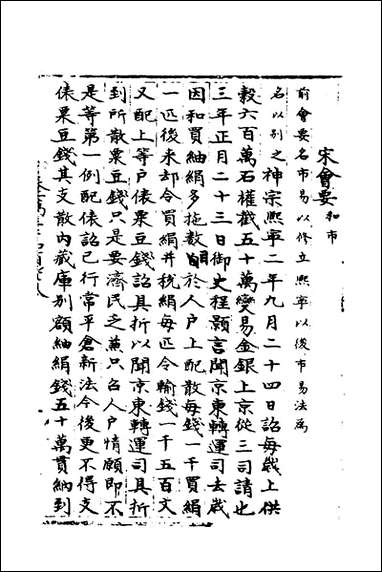 宋會要 和市
前會要名市易以修立熙寧以後市易法為
名以別之神宗熙寧二年九月二十四日詔每歲上供
穀六百萬石權截五十萬變易金銀上京從三司請也
三年正月二十三日御史程顥言聞京東轉運司去歲
因和買紬絹多拖數目於人户上配散每錢一千買絹
一匹後来却令買絹并稅絹每匹令輸錢一千五百文
又配上等户俵粟豆錢詔具折以聞京東轉運司具折
到所散粟豆錢只是要濟民乏兼只召人户情願即不
是等第一例配俵詔已行常平倉新法今後更不得支
俵粟豆錢其支散內藏庫別額紬絹錢五十萬貫納到